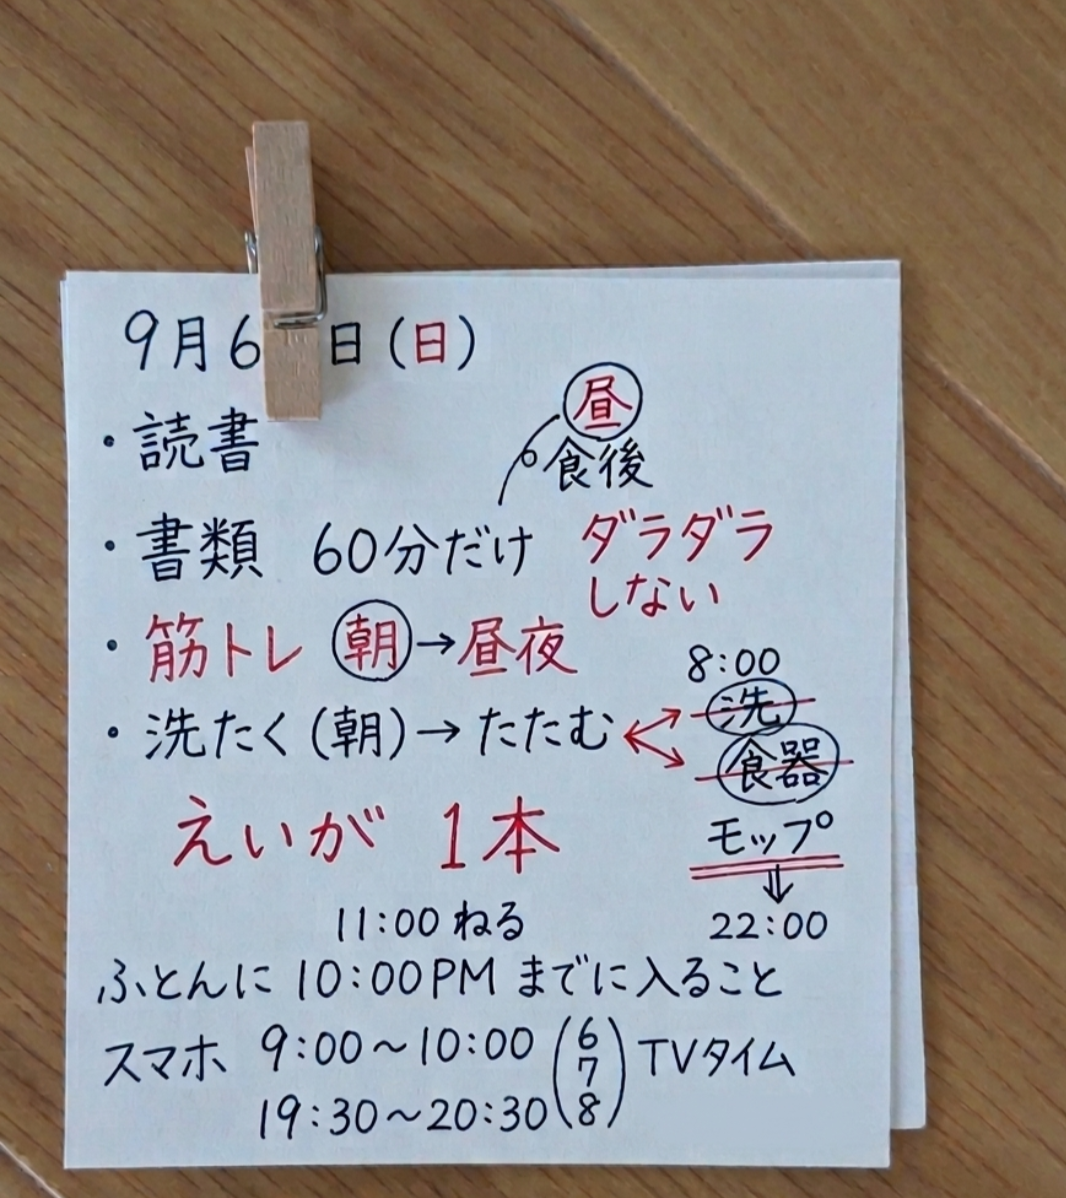 9月6日(日)
・読書
昼
食後
・書類 60分だけ
ダラダラ
しない
・筋トレ 朝→昼夜
・洗たく(朝)→たたむ
8:00
洗
食器
モップ
⇓
22:00
えいが 1本
11:00 ねる
ふとんに 10:00PM までに入ること
スマホ 9:00〜10:00
19:30〜20:30
(6
7
8)
TVタイム